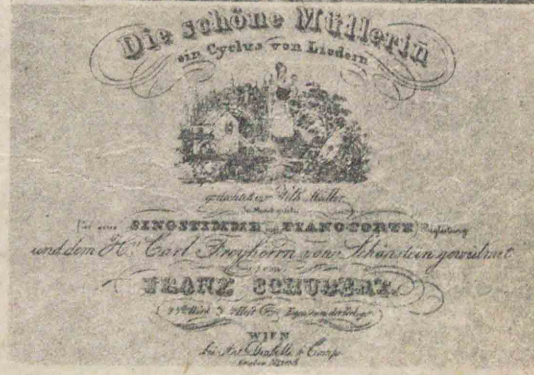 Die schöne Müllerin
ein Cyclus von Liedern
gedichtet von Wilh. Müller
In Musik gesetzt
für eine SINGSTIMME mit PIANOFORTE Begleitung
und dem Hn. Carl Freyherrn von Schönstein gewidmet
von
FRANZ SCHUBERT.
Eigenthum der Verleger
WIEN
bei Ant. Diabelli & Comp.
Graben